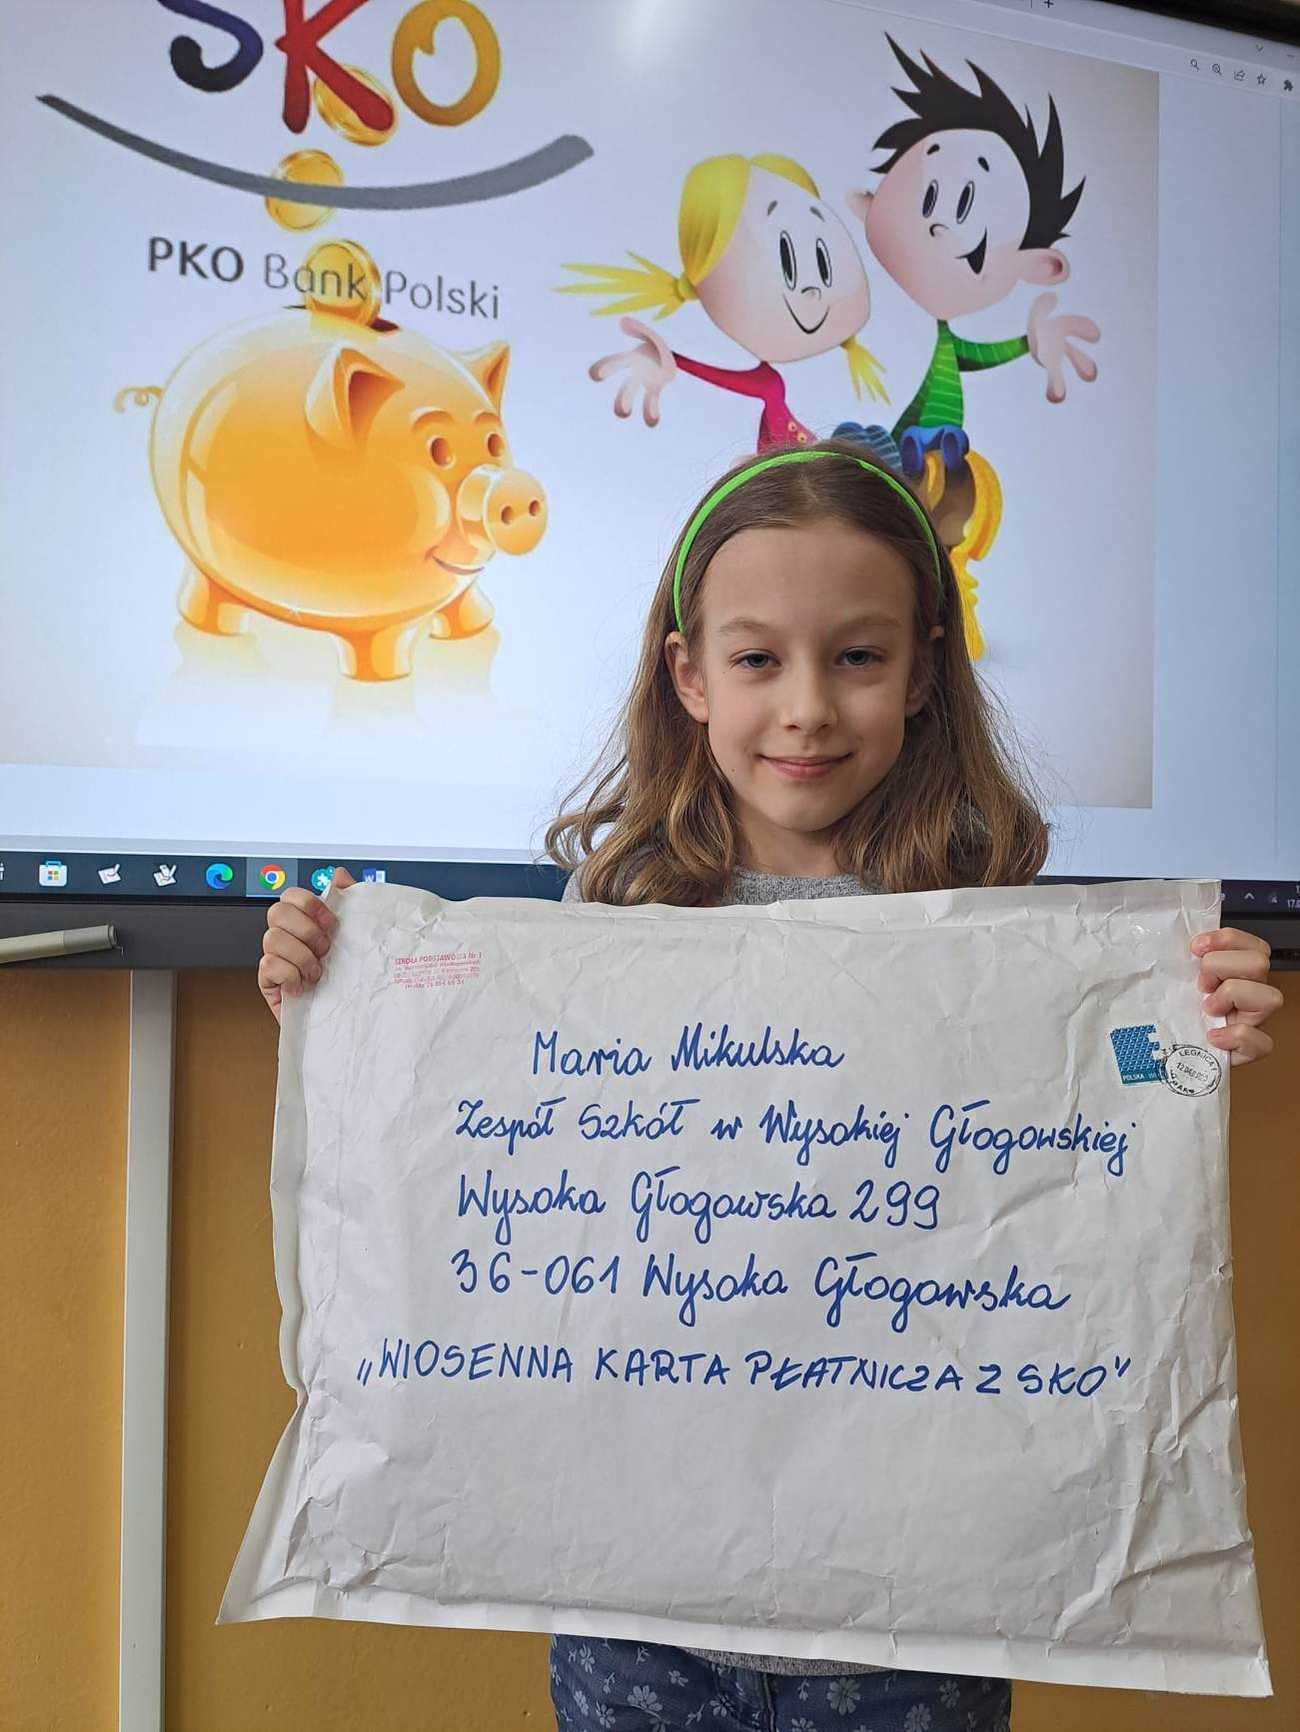 SKO
PKO Bank Polski
SZKOŁA PODSTAWOWA Nr 1
Maria Mikulska
Zespół Szkół w Wysokiej Głogowskiej
Wysoka Głogowska 299
36-061 Wysoka Głogowska
„WIOSENNA KARTA PŁATNICZA Z SKO"
E
POLSKA
LEGNICA 1